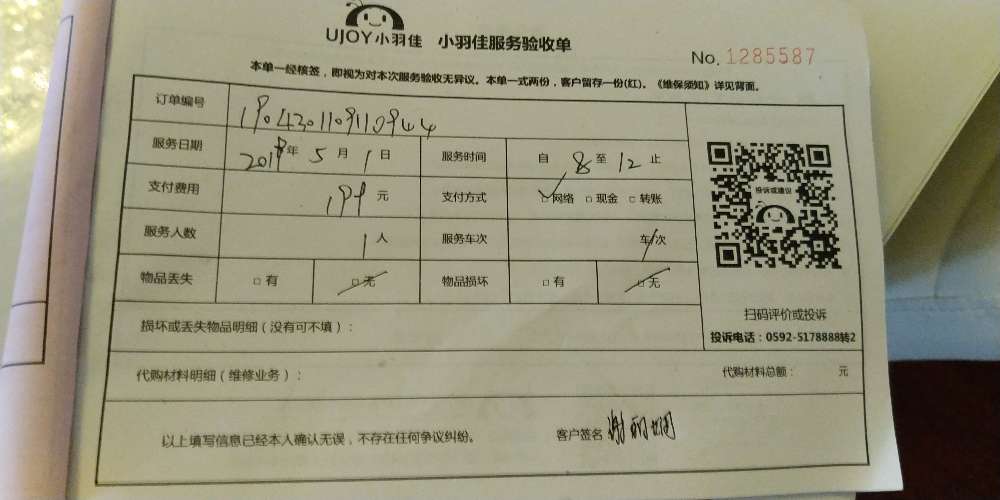 UJOY小羽佳 小羽佳服务验收单
No. 1285587
本单一经核签，即视为对本次服务验收无异议。本单一式两份，客户留存一份(红)。《维保须知》详见背面。
订单编号 1904301109110944
服务日期 2019年5月1日 服务时间 自8至12止
支付费用 199元 支付方式 □网络 □现金 □转账
服务人数 1人 服务车次 车/次
物品丢失 □有 □无 物品损坏 □有 □无
投诉或建议
扫码评价或投诉
投诉电话：0592-5178888转2
损坏或丢失物品明细（没有可不填）：
代购材料明细（维修业务）： 代购材料总额： 元
以上填写信息已经本人确认无误，不存在任何争议纠纷。 客户签名 谢丽娴